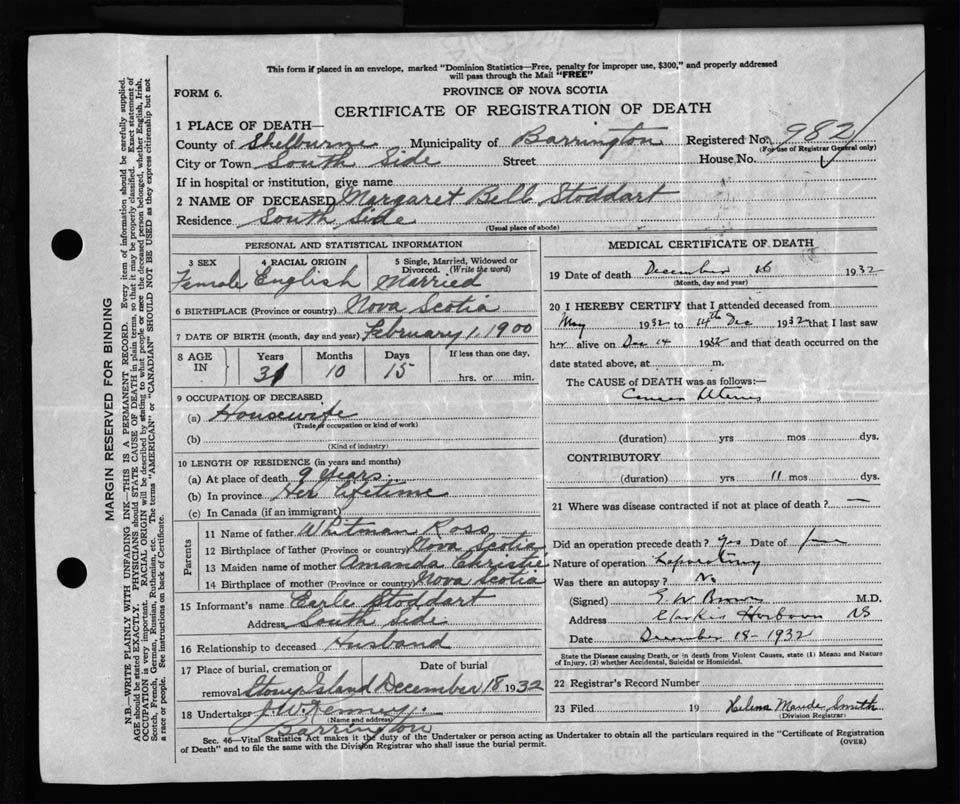 This form if placed in an envelope, marked "Dominion Statistics—Free, penalty for improper use, $300," and properly addressed
will pass through the Mail "FREE"
FORM 6.
PROVINCE OF NOVA SCOTIA
CERTIFICATE OF REGISTRATION OF DEATH
1 PLACE OF DEATH—
County of Shelburne Municipality of Barrington Registered No. 982
(For use of Registrar General only)
City or Town South Side Street House No.
If in hospital or institution, give name
2 NAME OF DECEASED Margaret Bell Stoddart
Residence South Side
(Usual place of abode)
PERSONAL AND STATISTICAL INFORMATION
3 SEX 4 RACIAL ORIGIN 5 Single, Married, Widowed or
Divorced. (Write the word)
Female English Married
6 BIRTHPLACE (Province or country) Nova Scotia
7 DATE OF BIRTH (month, day and year) February 1, 1900
8 AGE IN Years Months Days If less than one day,
31 10 15 hrs. or min.
9 OCCUPATION OF DECEASED
(a) Housewife
(Trade or occupation or kind of work)
(b)
(Kind of industry)
10 LENGTH OF RESIDENCE (in years and months)
(a) At place of death 9 years
(b) In province Her lifetime
(c) In Canada (if an immigrant)
Parents
11 Name of father Whitman Ross
12 Birthplace of father (Province or country) Nova Scotia
13 Maiden name of mother Amanda Christie
14 Birthplace of mother (Province or country) Nova Scotia
15 Informant's name Earle Stoddart
Address South Side
16 Relationship to deceased Husband
17 Place of burial, cremation or Date of burial
removal Stony Island December 18 1932
18 Undertaker J. W. Kenney
(Name and address)
Barrington
MEDICAL CERTIFICATE OF DEATH
19 Date of death December 16 1932
(Month, day and year)
20 I HEREBY CERTIFY that I attended deceased from
May 1932 to 14th Dec 1932 that I last saw
her alive on Dec 14 1932 and that death occurred on the
date stated above, at m.
The CAUSE OF DEATH was as follows:—
Cancer Uterus
(duration) yrs mos dys.
CONTRIBUTORY
(duration) yrs 11 mos dys.
21 Where was disease contracted if not at place of death? —
Did an operation precede death? Yes Date of June
Nature of operation Laparotomy
Was there an autopsy? No
(Signed) E W Brown M.D.
Address Clarks Harbour NS
Date December 18- 1932
State the Disease causing Death, or in death from Violent Causes, state (1) Means and Nature
of Injury, (2) whether Accidental, Suicidal or Homicidal.
22 Registrar's Record Number
23 Filed 19 Helena Maude Smith
(Division Registrar)
Sec. 46—Vital Statistics Act makes it the duty of the Undertaker or person acting as Undertaker to obtain all the particulars required in the "Certificate of Registration
of Death" and to file the same with the Division Registrar who shall issue the burial permit.
(OVER)
MARGIN RESERVED FOR BINDING
N.B.—WRITE PLAINLY WITH UNFADING INK—THIS IS A PERMANENT RECORD. Every item of information should be carefully supplied.
AGE should be stated EXACTLY. PHYSICIANS should STATE CAUSE OF DEATH in plain terms, so that it may be properly classified. Exact statement of
OCCUPATION is very important. RACIAL ORIGIN will be described by stating to what people or race the deceased person belonged, whether English, Irish,
Scotch, French, German, Russian, Ruthenian, etc. The terms "AMERICAN" or "CANADIAN" SHOULD NOT BE USED as they express citizenship but not
a race or people. See instructions on back of Certificate.